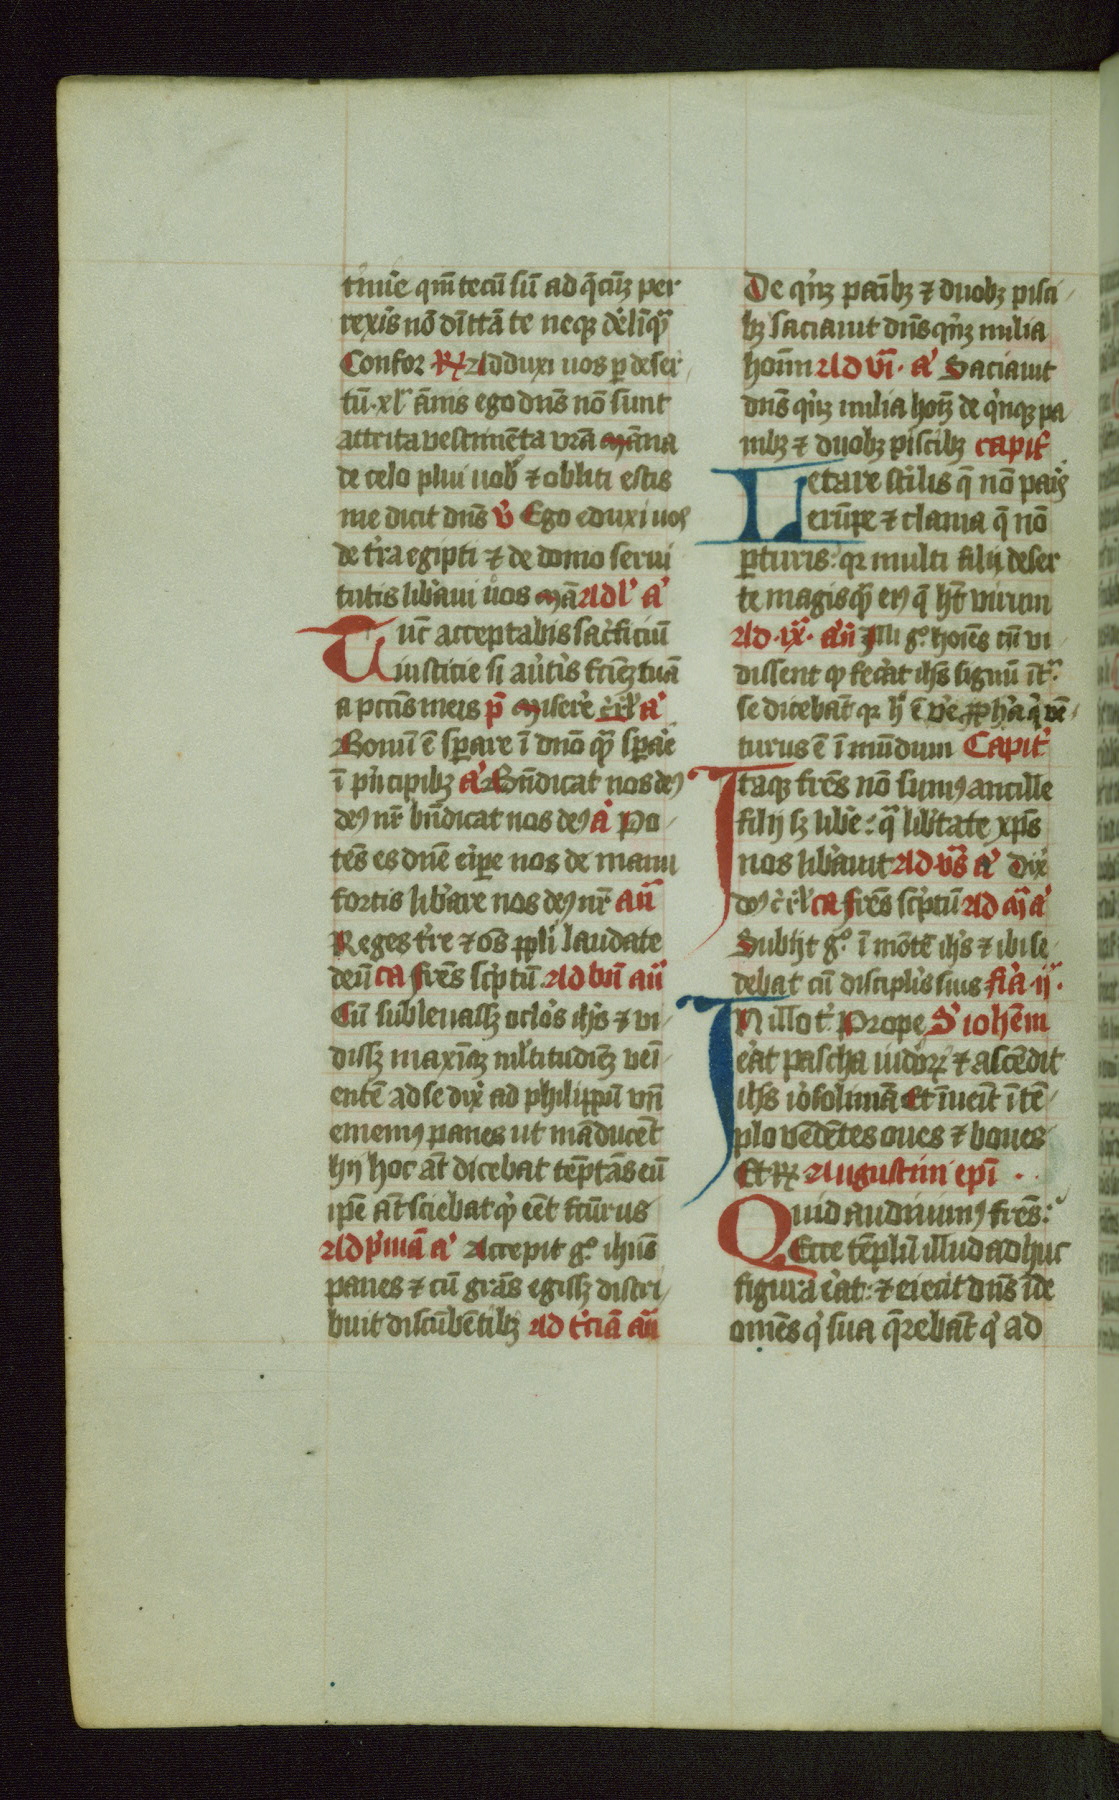 timue qm̄ tecū sū ad q̄cūqȝ per
rexis nō dīttā te neqȝ deliq̄
Confor R Adduxi uos p deser
tū xl ānis ego dn̄s nō sunt
attrita vestimēta vrā māna
de celo plui uob ⁊ obliti estis
me dicit dn̄s v Ego eduxi uos
de tra egipti ⁊ de domo serui
tutis libaui uos mā Ad l a
Tūc acceptabis sacficiū
iusticie si autis fciēȝ tuā
a pctīs meis p̄ misere a
Bonū ē sperare ī dnō q̄ sperare
ī pncipibȝ a Bn̄dicat nos deꝰ
deꝰ nr̄ bn̄dicat nos deꝰ a Po
tēs es dn̄e eripe nos de manu
fortis libare nos deꝰ nr̄ an̄
Reges tre ⁊ oēs ppli laudate
deū ca fr̄es sc̄ptū Ad bn̄ an̄
Cū subleuassȝ oclos ih̄s ⁊ vi
dissȝ maximȝ mltitudiēȝ veni
entē ad se dix ad philippū vn̄
ememꝰ panes ut māducēt
hij hoc aūt dicebat tēptās eū
ipē aūt sciebat qd eēt fcūrus
Ad pmā a Accepit gͦ ih̄us
panes ⁊ cū grās egissȝ distri
buit discūbētibȝ ad tciā an̄
De qnqȝ panibȝ ⁊ duobȝ pisci
bȝ saciauit dn̄s qnqȝ milia
hoīm Ad vī a Saciauit
dn̄s qnqȝ milia hoīȝ de qnqȝ pa
nibȝ ⁊ duobȝ piscibȝ capit
Letare stilis q̄ nō paris
erūpe ⁊ clama q̄ nō
pturis qr multi filij deser
te magis q̄ eiꝰ q̄ ht̄ virum
Ad ix an̄ Illi gͦ hoīes cū vi
dissent qd fecat ih̄s signū īt
se dicebāt qr h̄ ē vere ppha q vē
turus ē ī mūdum Capit
Itaqȝ fr̄es nō sumꝰ ancille
filij sȝ libe q̄ libtate xp̄s
nos libauit Ad vs̄ a Dix
ca fr̄es sc̄ptū Ad a
Subijt gͦ ī mōtē ih̄s ⁊ ibi se
debat cū disciplis suis fia ij
In illo t Prope S iohēm
eat pascha iudoꝝ ⁊ ascēdit
ih̄s iosolimā Et īueīt ī tē
plo vēdētes oues ⁊ boues
Et R Augustini epī
Quid audiuimꝰ fr̄es
Ecce tēplū illud adhuc
figura eat ⁊ eiecit dn̄s īde
om̄ēs q sua q̄rebāt q ad